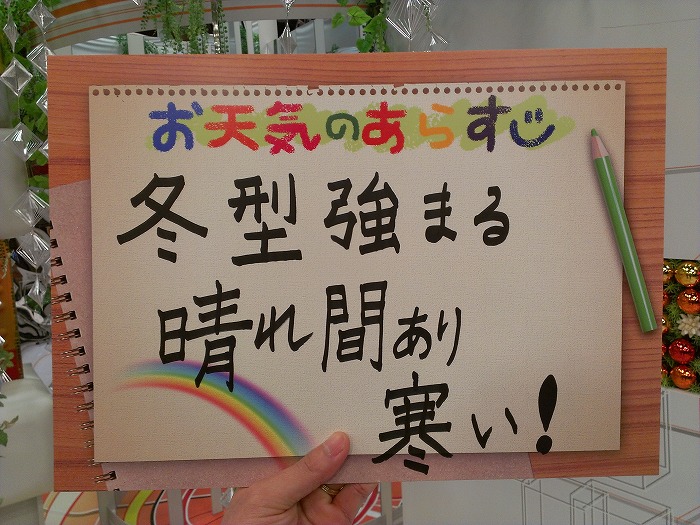 お天気のあらすじ
冬型強まる
晴れ間あり
寒い!